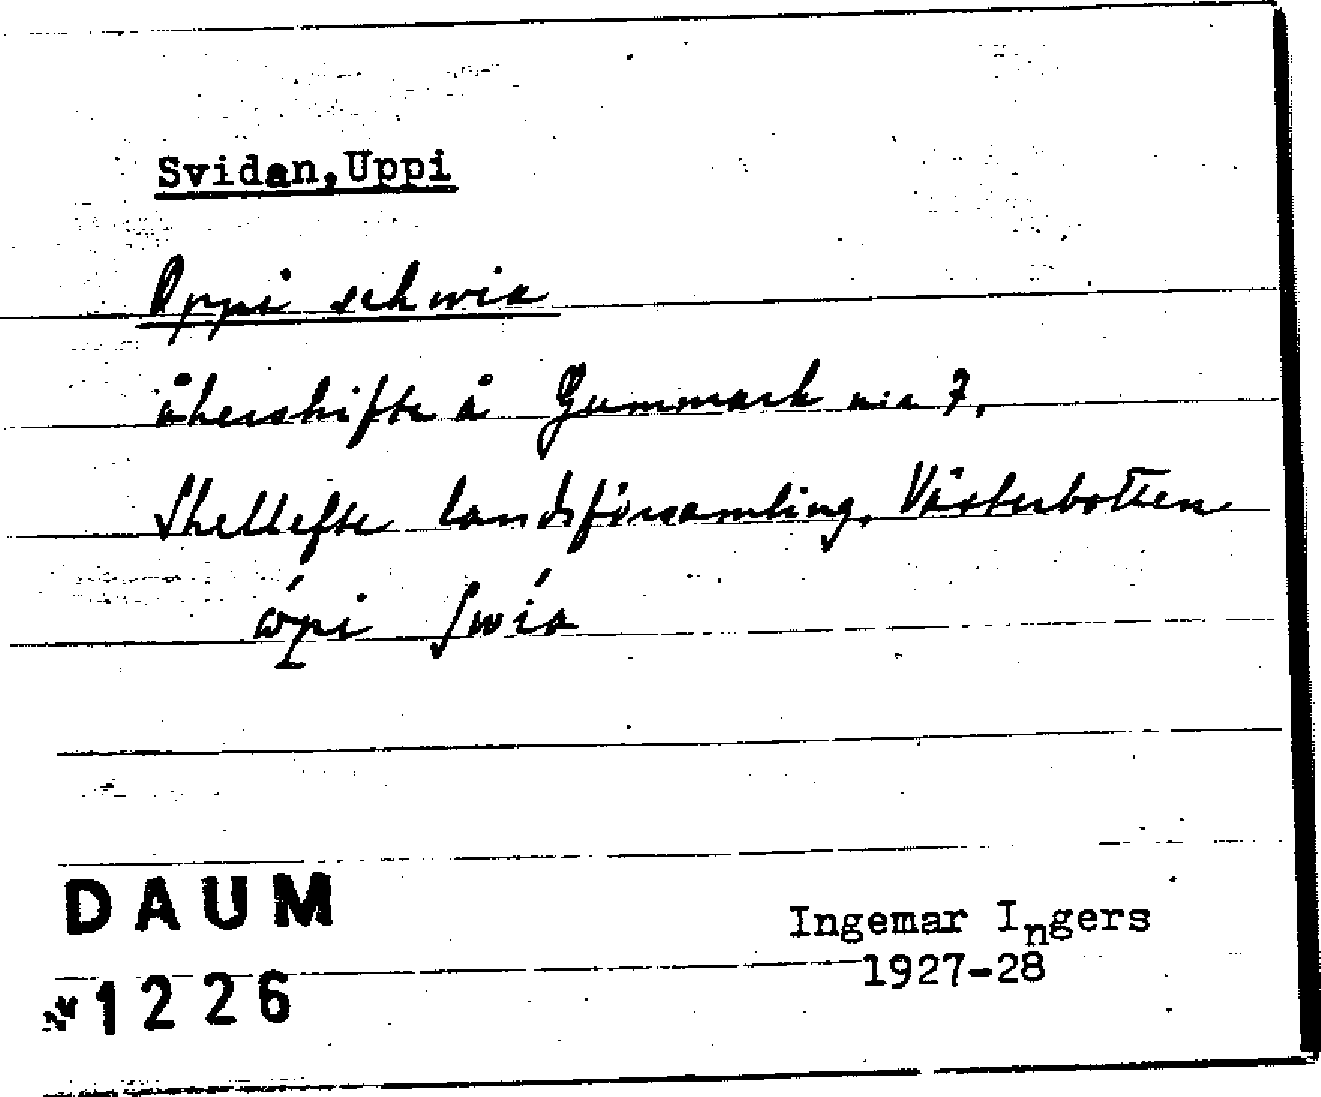 Svidan, Uppi
Oppi schwia
åkerskifte å Gummark n:r 7,
Skellefte landsförsamling, Västerbotten
ώpi ʃwía
DAUM
1226
Ingemar Ingers
1927-28